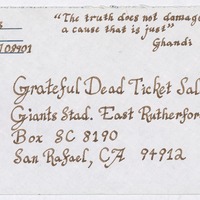 "The truth does not damage
a cause that is just"
Ghandi
Grateful Dead Ticket Sal
Giants Stad. East Rutherfor
Box SC 8190
San Rafael, CA 94912